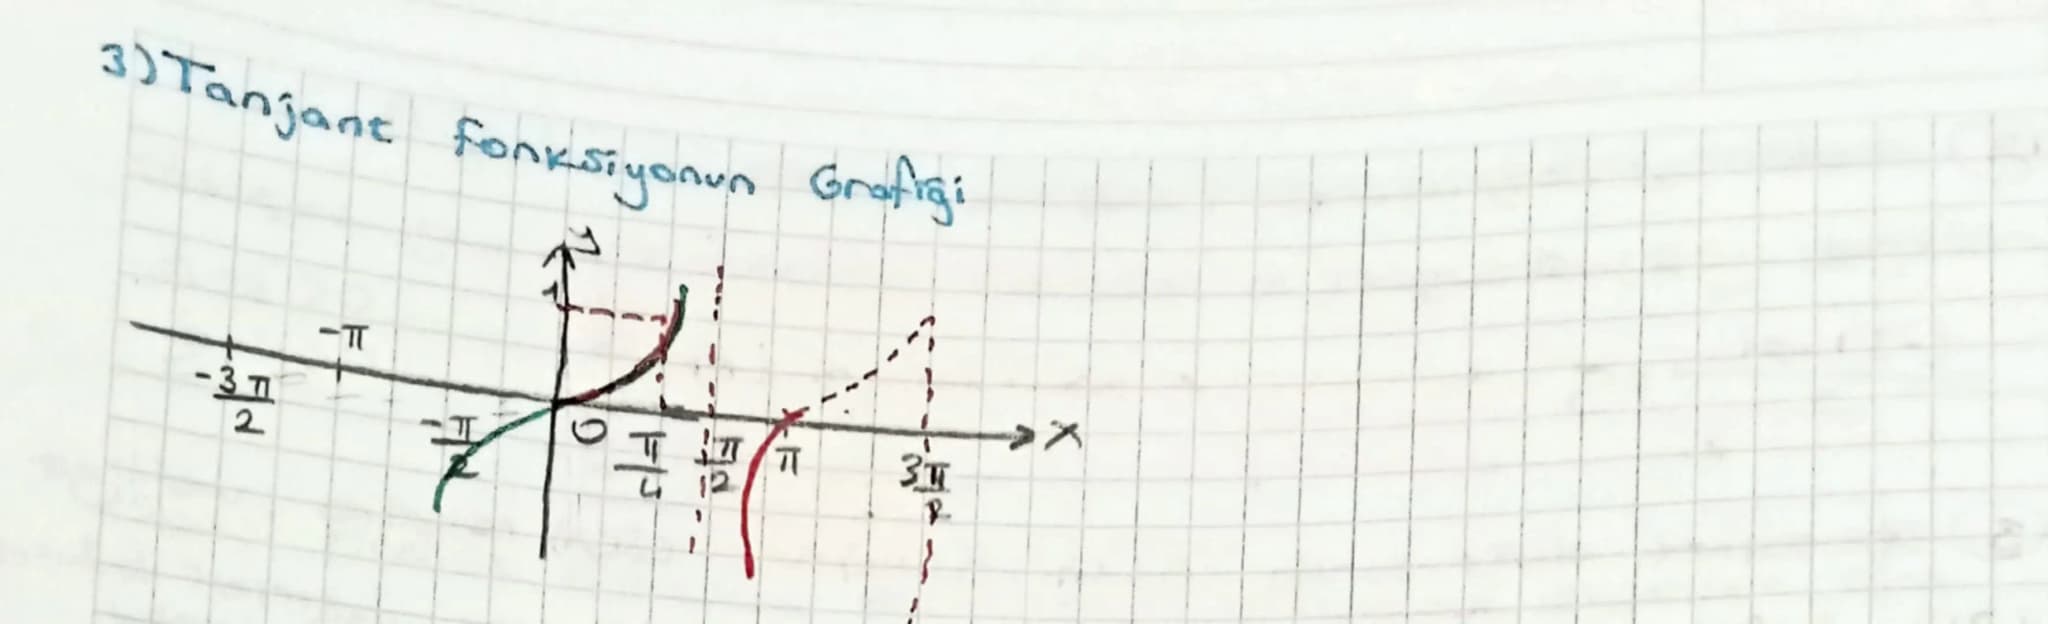 3) Tanjant fonksiyonun Grafiği
y
1
-π
-3π/2
-π/2
0
π/4
π/2
π
3π/2
x